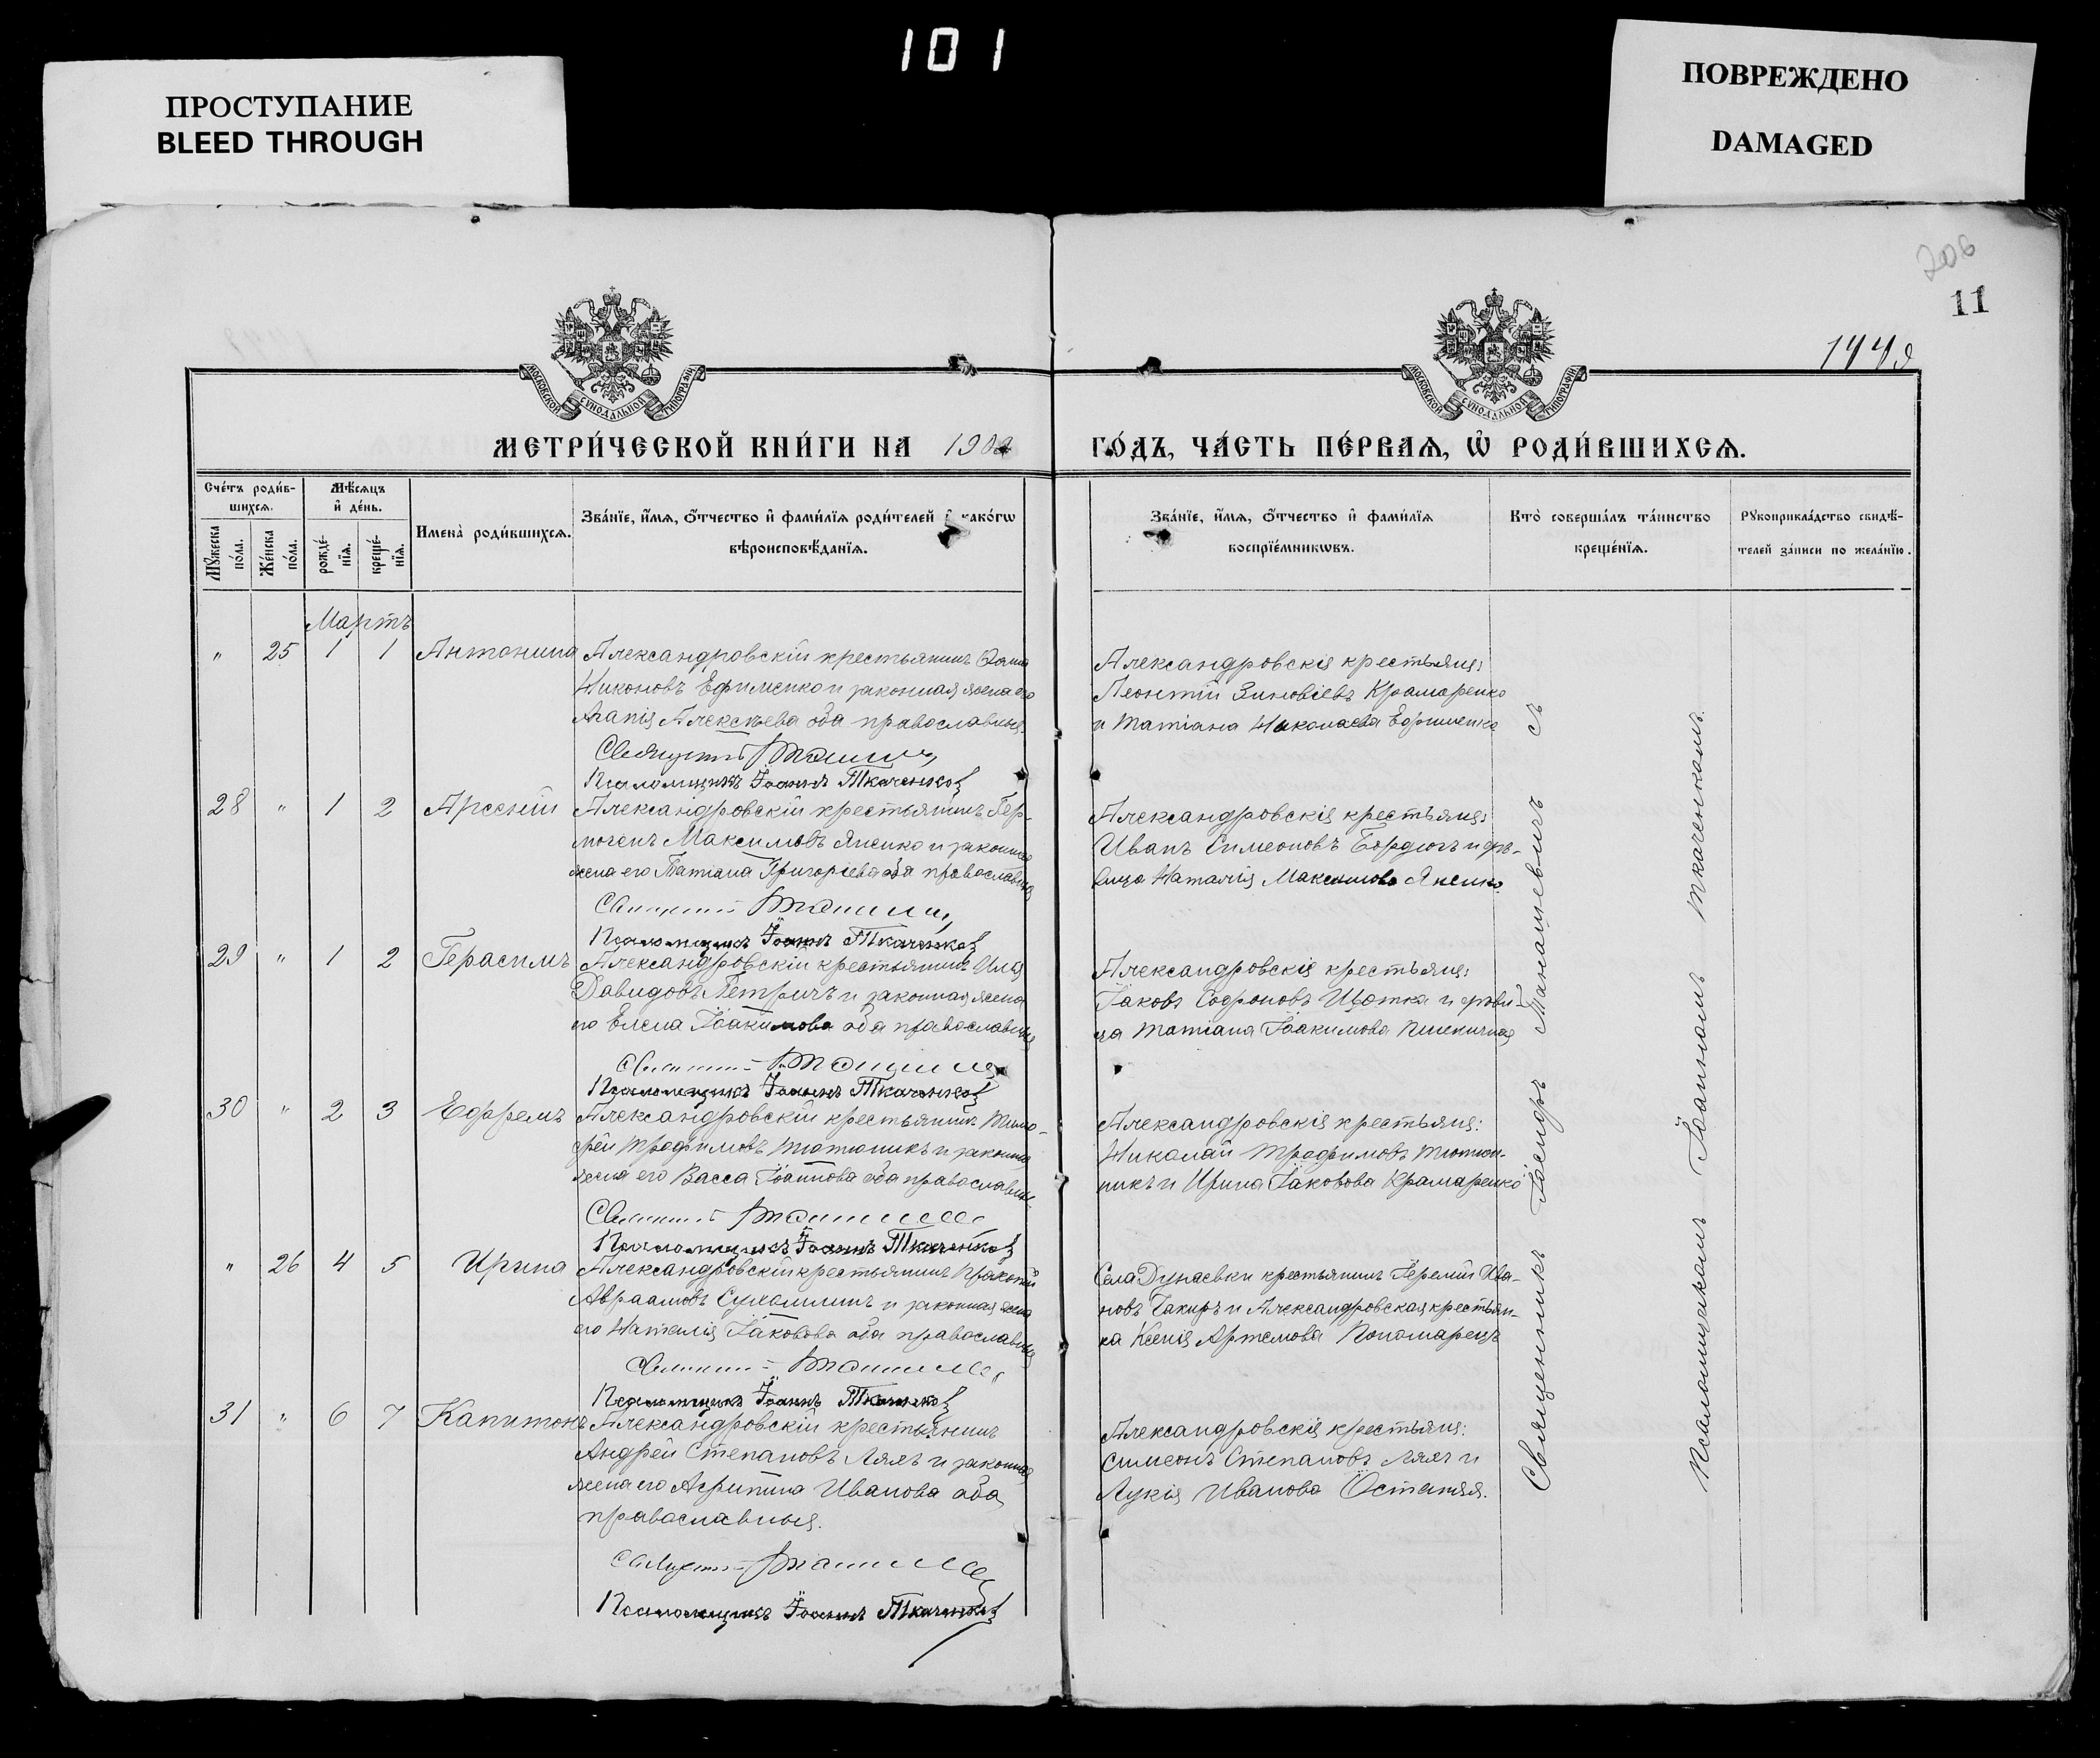 101
ПРОСТУПАНИЕ
BLEED THROUGH
ПОВРЕЖДЕНО
DAMAGED
206
11
МОСКОВСКОЙ СѴНОДАЛЬНОЙ ТИПОГРАФІИ
МОСКОВСКОЙ СѴНОДАЛЬНОЙ ТИПОГРАФІИ
МЕТРИ́ЧЕСКОЙ КНИ́ГИ НА 190
ГО́ДЪ, ЧА́СТЬ ПЕ́РВАѦ, Ѡ РОДИ́ВШИХСѦ.
Сче́тъ роди́вшихсѧ.
Мꙋ́жеска по́ла.
Же́нска по́ла.
Мѣ́сѧцъ и҆ де́нь.
рожде́нїѧ.
креще́нїѧ.
Имена̀ роди́вшихсѧ.
Зва́нїе, и҆́мѧ, ѻ҆́тчество и҆ фами́лїѧ роди́телей и҆ како́гѡ
вѣроисповѣ́данїѧ.
Зва́нїе, и҆́мѧ, ѻ҆́тчество и҆ фами́лїѧ
воспрїе́мникѡвъ.
Кто̀ соверша́лъ та́инство
креще́нїѧ.
Рꙋкоприкла́дство свидѣ́-
телей за́писи по жела́нїю.
Мартъ
" 25 1 1 Антонина Александровскій крестьянинъ Фома
Никоновъ Ефименко и законная жена его
Агапія Алексѣева оба православные.
Псаломщикъ Іоаннъ Ткаченко
Александровскія крестьяне:
Леонтій Зиновіевъ Крамаренко
и Татіана Николаева Ефименко
28 " 1 2 Арсеній Александровскій крестьянинъ Гер-
могенъ Максимовъ Яненко и законная
жена его Татіана Григоріева оба православные
Псаломщикъ Іоаннъ Ткаченко
Александровскія крестьяне:
Иванъ Симеоновъ и дѣ-
вица Наталія Максимова Яненко
29 " 1 2 Герасимъ Александровскій крестьянинъ Илія
Давидовъ Петричъ и законная жена
его Елена Іоакимова оба православные
Псаломщикъ Іоаннъ Ткаченко
Александровскія крестьяне:
Іаковъ Софроновъ Щотка и дѣви-
ца Татіана Іоакимова Пшенична
30 " 2 3 Ефремъ Александровскій крестьянинъ Тимо-
фей Трофимовъ Тютюникъ и законная
жена его Васса Іоаннова оба православные
Псаломщикъ Іоаннъ Ткаченко
Александровскія крестьяне:
Николай Трофимовъ Тютюн-
никъ и Ирина Іаковова Крамаренко
" 26 4 5 Ирина Александровскій крестьянинъ Прокопій
Авраамовъ Сухомлинъ и законная жена
его Наталія Іаковова оба православные
Псаломщикъ Іоаннъ Ткаченко
Села Дунаевки крестьянинъ Іеремій Ива-
новъ Чакиръ и Александровская крестьян-
ка Ксенія Артемова Пономарецъ
31 " 6 7 Капитонъ Александровскій крестьянинъ
Андрей Степановъ Лялъ и законная
жена его Агрипина Иванова оба
православные.
Псаломщикъ Іоаннъ Ткаченко
Александровскія крестьяне:
Симеонъ Степановъ Лялъ и
Лукія Иванова Остапяя.
Священникъ Іосифъ съ
Псаломщикомъ Іоанномъ Ткаченкомъ.